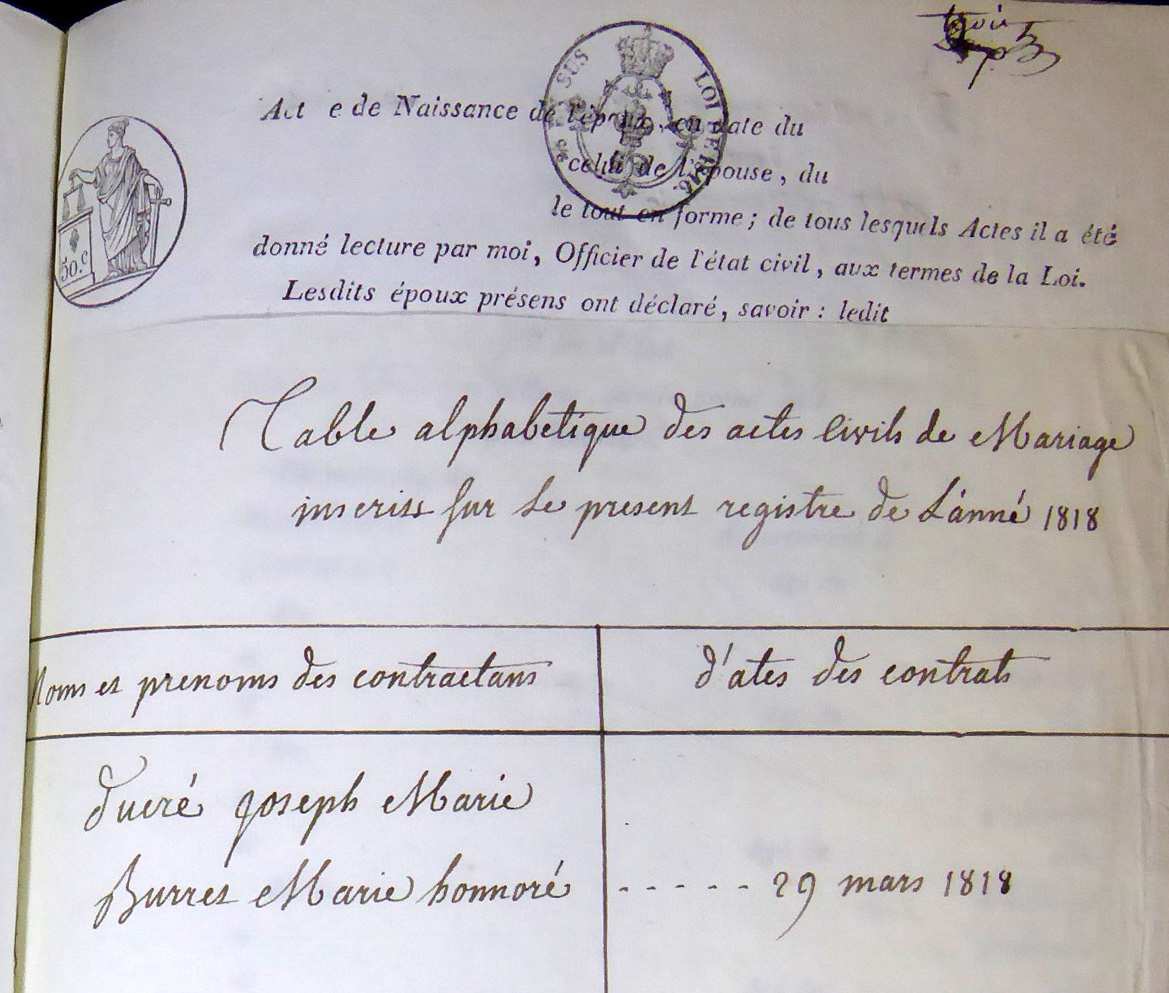 trois
Act e de Naissance de l'époux, en date du
celui de l'épouse, du
le tout en forme; de tous lesquels Actes il a été
donné lecture par moi, Officier de l'état civil, aux termes de la Loi.
Lesdits époux présens ont déclaré, savoir: ledit
50.c
EN SUS
LOI DE 1816.
Table alphabetique des actes civils de Mariage
inscrits sur le present registre de L'anné 1818
Noms et prenoms des contractans
d'ates des contrats
ducré joseph Marie
Burret Marie honnoré ----- 29 mars 1818